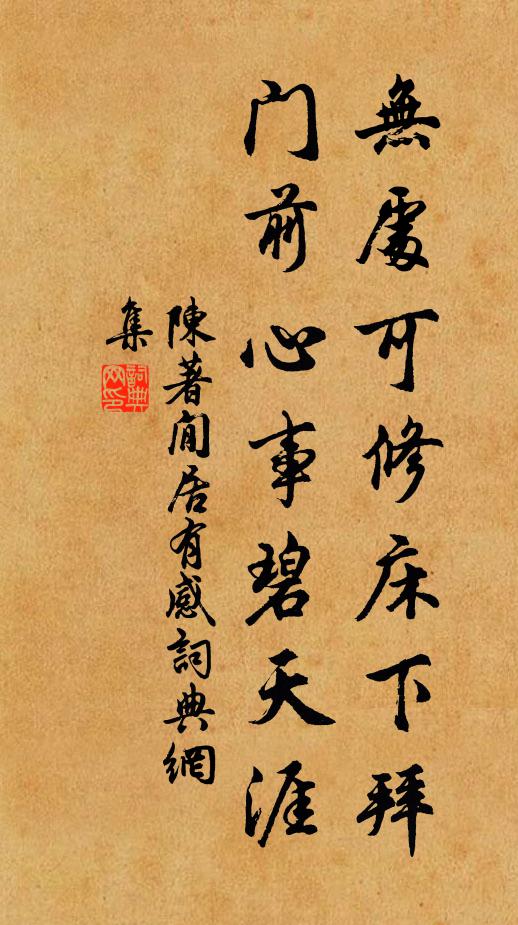 無處可修床下拜
門前心事碧天涯
陳著閒居有感詞典網
集
詞典
网印